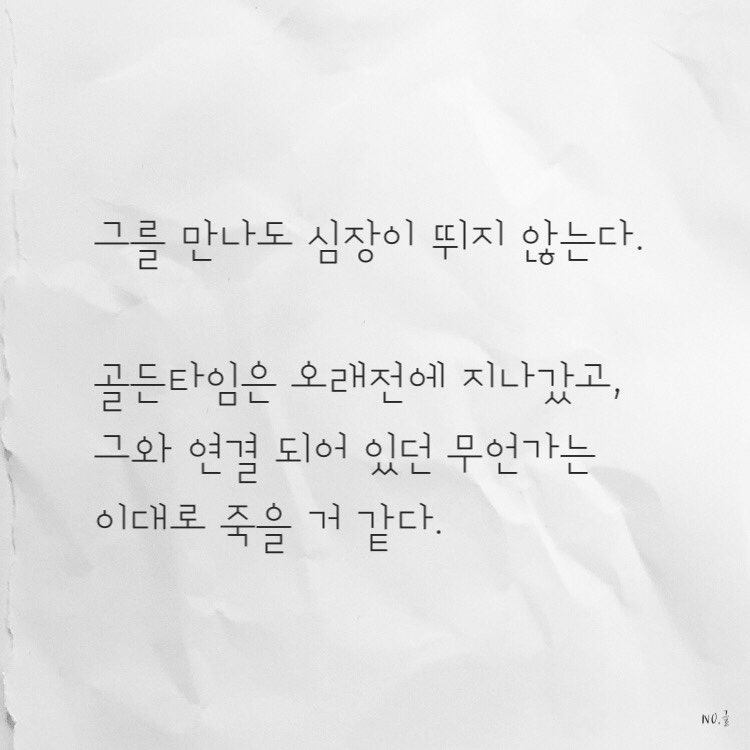 그를 만나도 심장이 뛰지 않는다.
골든타임은 오래전에 지나갔고,
그와 연결 되어 있던 무언가는
이대로 죽을 거 같다.
NO.글